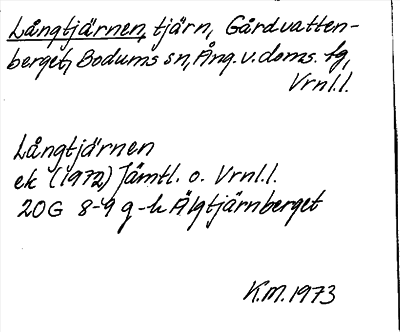 Långtjärnen, tjärn, Gårdvatten-
berget, Bodums sn, Ång. v. doms. fg,
Vrnl.l.
Långtjärnen
ek (1972) Jämtl. o. Vrnl.l.
20G 8-9 g-h Älgtjärnberget
K.M. 1973